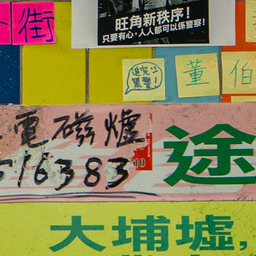 街
旺角新秩序！
只要有心，人人都可以係警察！
董伯
電磁爐
516383
10
途
大埔墟,